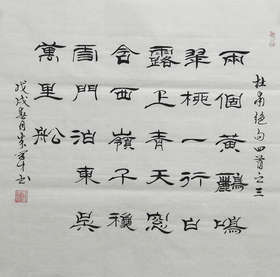 杜甫绝句四首之三
兩個黃鸝鳴
翠柳一行白
露上青天窓
含西嶺千穐
雪門泊東吳
萬里船
戊戌春月
书